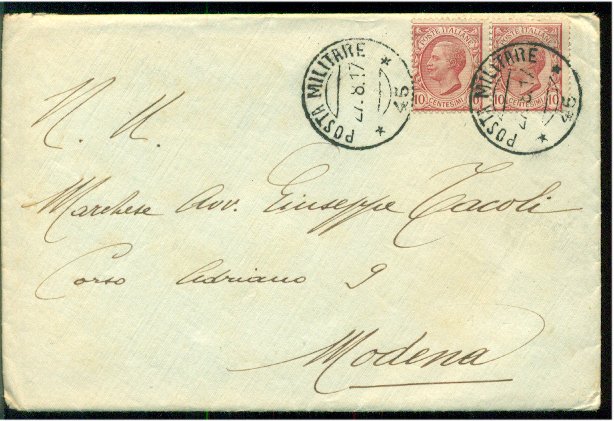 POSTE ITALIANE POSTE ITALIANE
10 CENTESIMI 10 10 CENTESIMI 10
POSTA MILITARE 45
27.8.17
POSTA MILITARE 45
27.8.17
N. H.
Marchese Avv. Giuseppe Tacoli
Corso Adriano 9
Modena